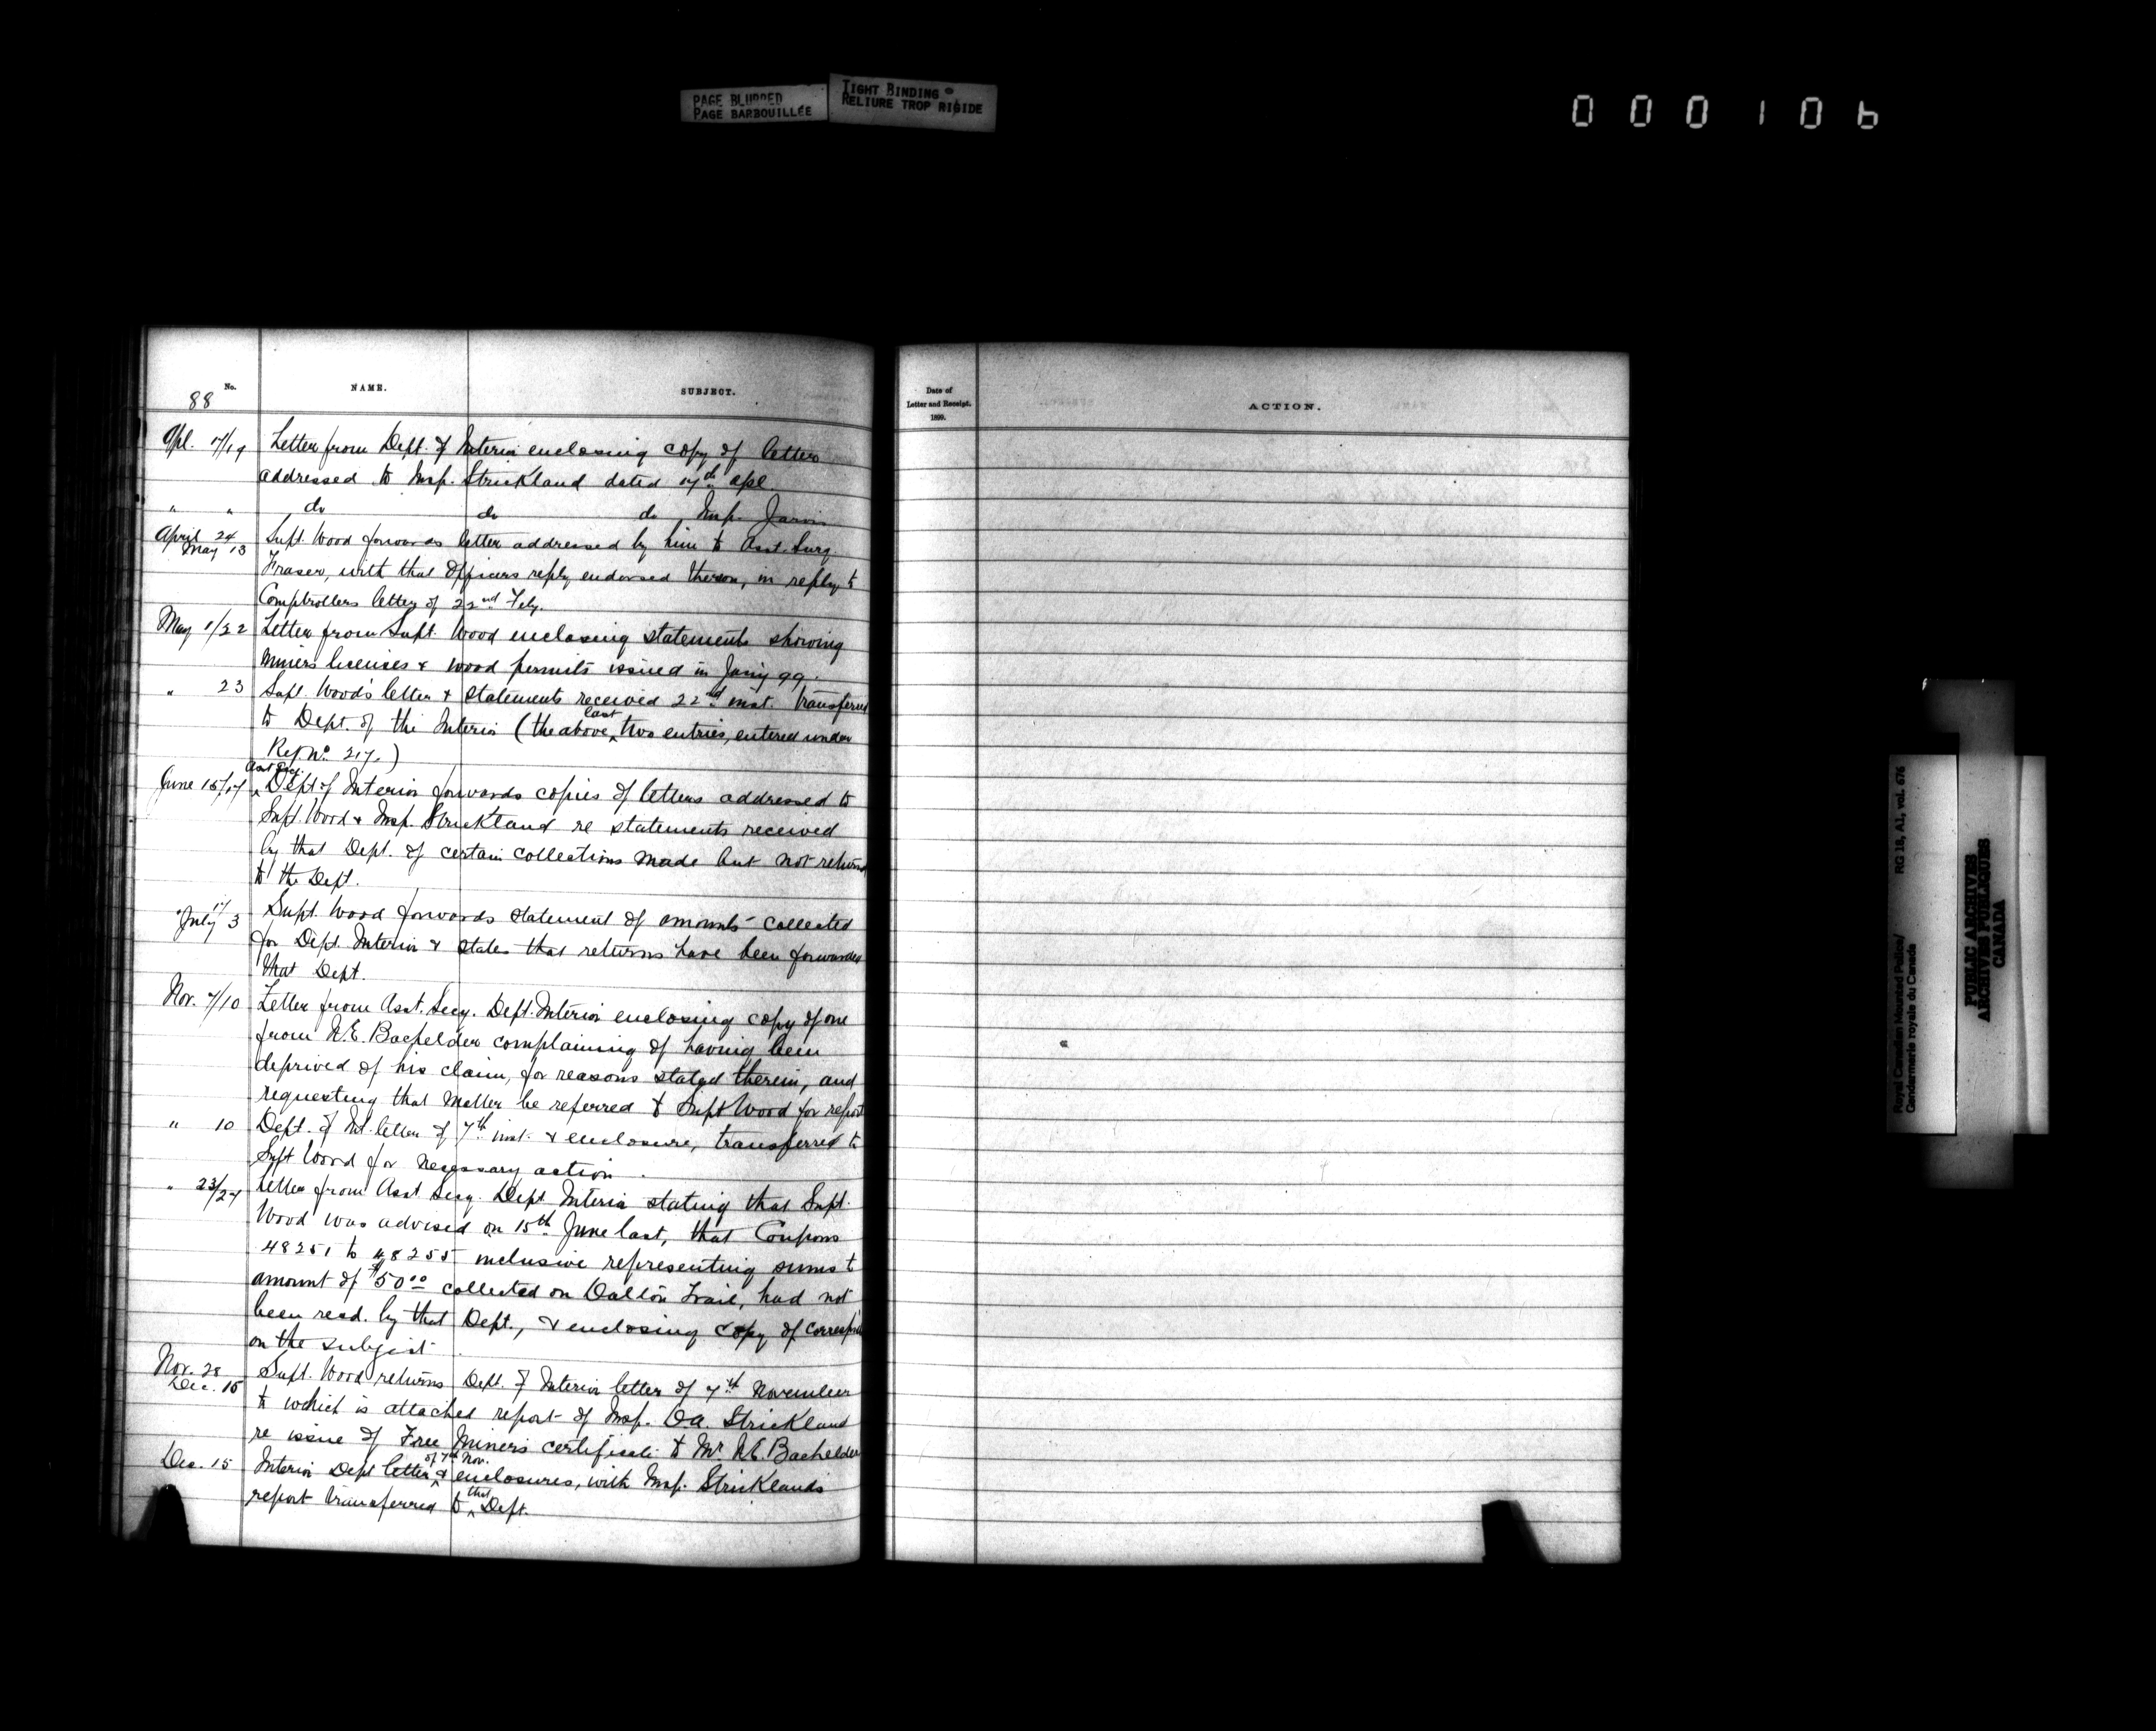 PAGE BLURRED
PAGE BARBOUILLÉE
TIGHT BINDING
RELIURE TROP RIGIDE
000106
No.
NAME.
SUBJECT.
88
Apl. 17/19 Letter from Dept. of Interior enclosing copy of letter
addressed to Insp. Strickland dated 17th Apl.
" " do do do Insp. Jarvis
April 24
May 13
Supt. Wood forwards letter addressed by him to Asst. Surg.
Fraser, with that Officers reply endorsed thereon, in reply to
Comptrollers letter of 22nd Feby.
May 1/22 Letter from Supt. Wood enclosing statements showing
Miners licenses & wood permits issued in Jany 99.
" 23 Supt. Wood's letter & statements received 22nd inst. transferred
to Dept. of the Interior (the above last two entries, entered under
Ref No. 217.)
June 15/17 Asst Secy. Dept of Interior forwards copies of letters addressed to
Supt. Wood & Insp. Strickland re statements received
by that Dept. of certain collections made but not returned
to the Dept.
" 17
July 3
Supt. Wood forwards statement of amounts collected
for Dept. Interior & states that returns have been forwarded
that Dept.
Nov. 7/10 Letter from Asst. Secy. Dept. Interior enclosing copy of one
from N.E. Bachelder complaining of having been
deprived of his claim, for reasons stated therein, and
requesting that matter be referred to Supt Wood for report
" 10 Dept. of Int. letter of 7th inst. & enclosure, transferred to
Supt Wood for necessary action.
" 23/27 Letter from Asst Secy. Dept Interior stating that Supt.
Wood was advised on 15th June last, that Coupons
48251 to 48255 inclusive representing sums to
amount of $50.00 collected on Dalton Trail, had not
been recd. by that Dept., & enclosing copy of corresp
on the subject.
Nov. 28
Dec. 15
Supt. Wood returns Dept. of Interior letter of 7th November
to which is attached report of Insp. D.A. Strickland
re issue of Free Miner's certificate to Mr. N.E. Bachelder
Dec. 15 Interior Dept letter of 7th Nov. & enclosures, with Insp. Stricklands
report transferred to that Dept.
Date of
Letter and Receipt.
1899.
ACTION.
Royal Canadian Mounted Police/ RG 18, A1, vol. 676
Gendarmerie royale du Canada
PUBLIC ARCHIVES
ARCHIVES PUBLIQUES
CANADA